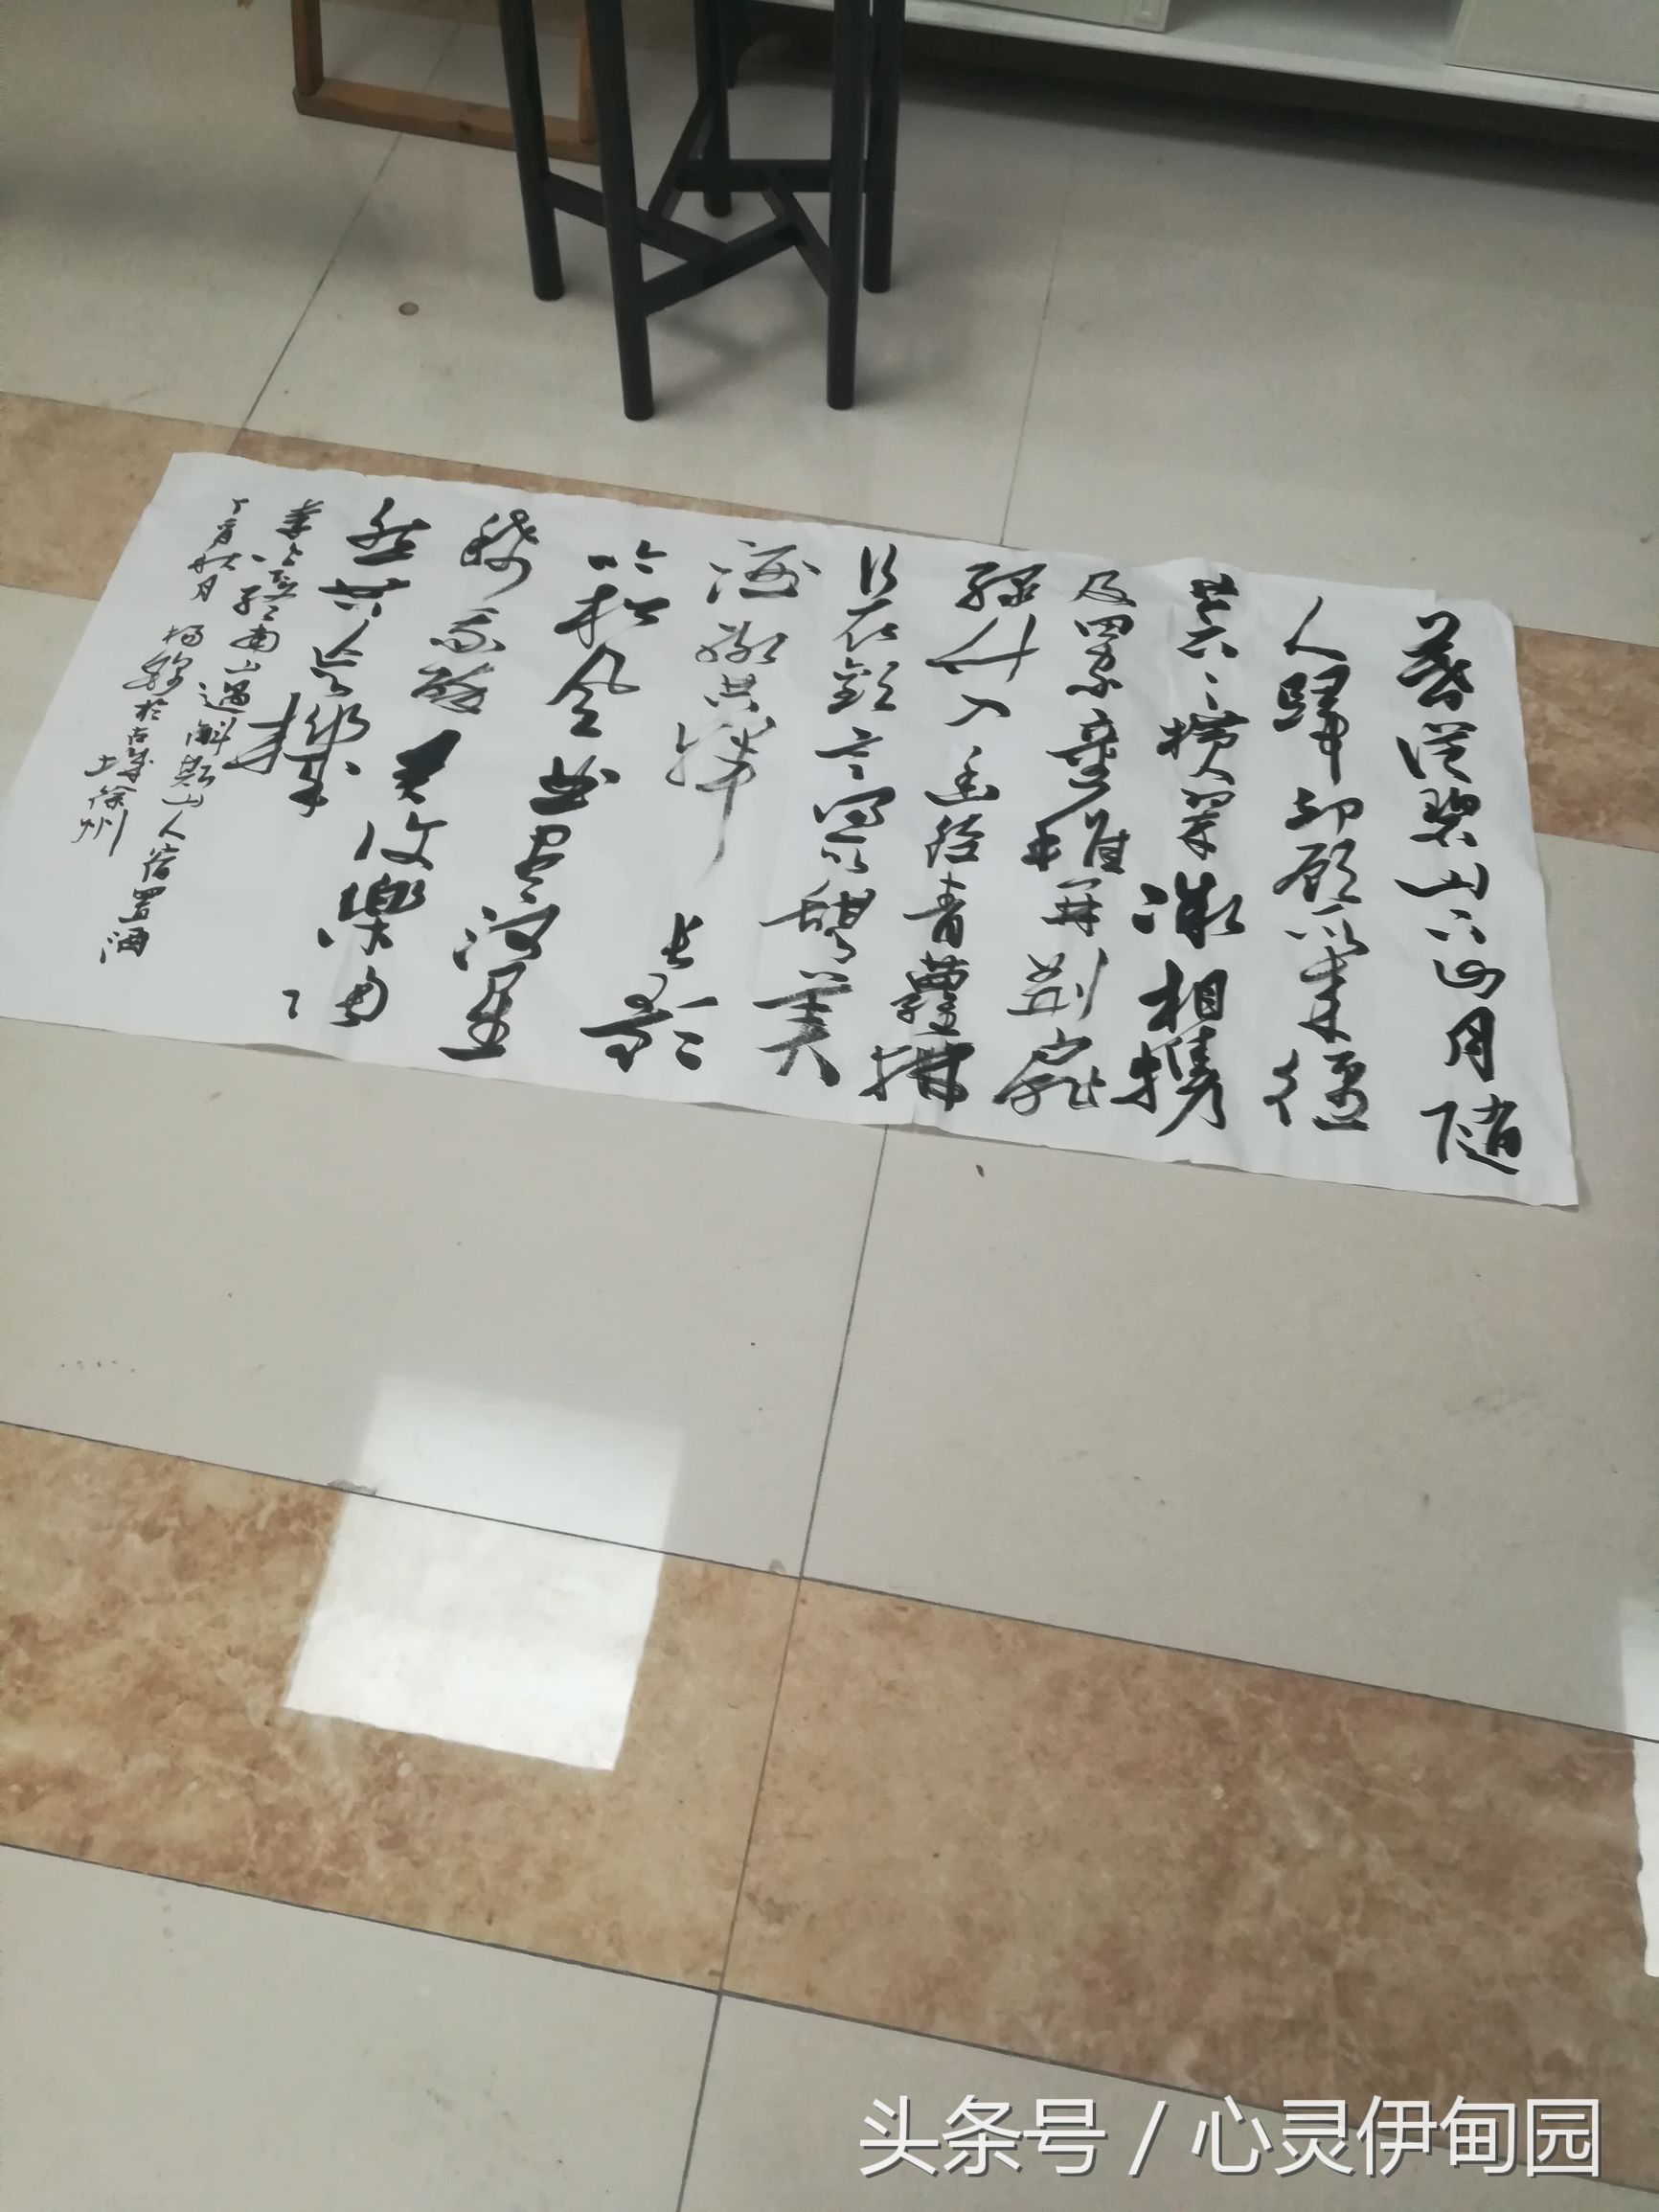 暮從碧山下山月隨
人歸却顧所來徑
蒼々橫翠微相攜
及田家童稚開荊扉
綠竹入幽徑青蘿拂
行衣歡言得所憩美
酒聊共揮長歌
吟松風曲盡河星
稀我醉君復樂陶
然共忘機
李白下終南山過斛斯山人宿置酒
丁酉 月 楊 於古城徐州
头条号 / 心灵伊甸园